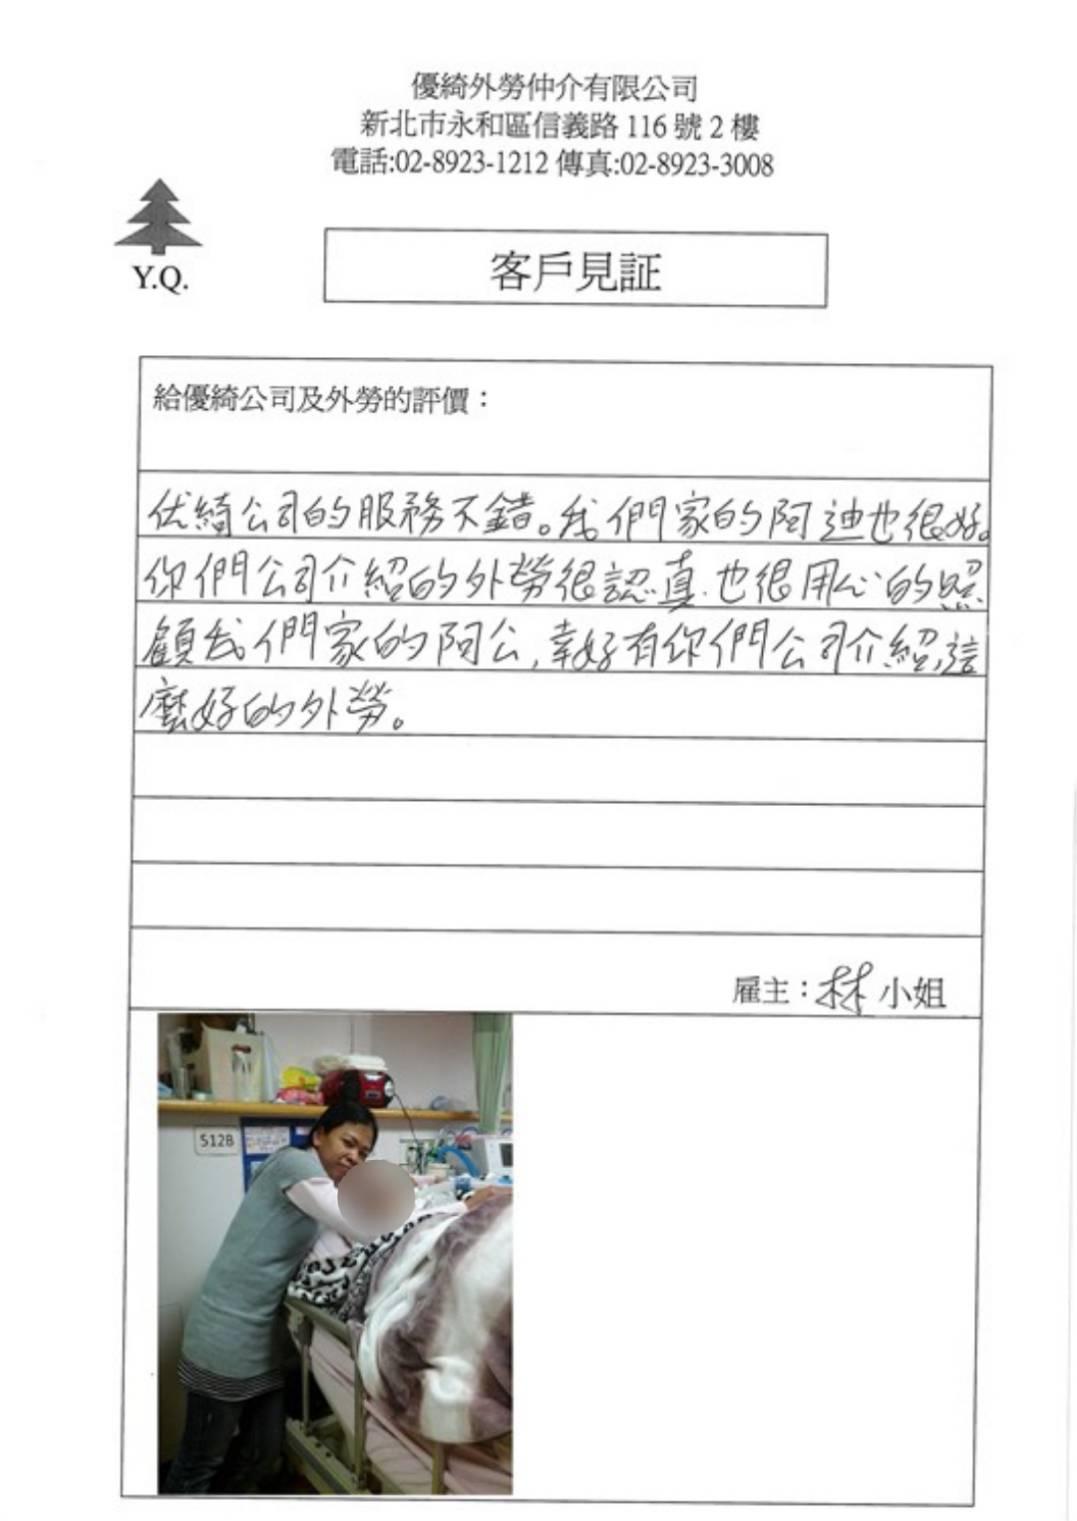 優綺外勞仲介有限公司
新北市永和區信義路 116 號 2 樓
電話:02-8923-1212 傳真:02-8923-3008
Y.Q.
客戶見証
給優綺公司及外勞的評價：
优綺公司的服務不錯。我們家的阿迪也很好。
你們公司介紹的外勞很認真.也很用心的照
顧我們家的阿公,幸好有你們公司介紹,這
麼好的外勞。
雇主：林 小姐
512B